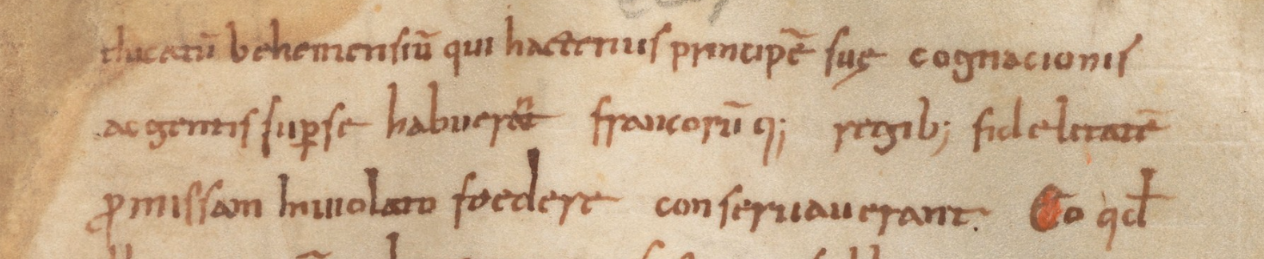 ducatū behemensiū qui hactenus principē suę cognacionis
ac gentis sup̱ se habuerāt francorūq; regib; fidelitatē
ꝓmissam inuiolato foedere conseruauerant. Eo qđ